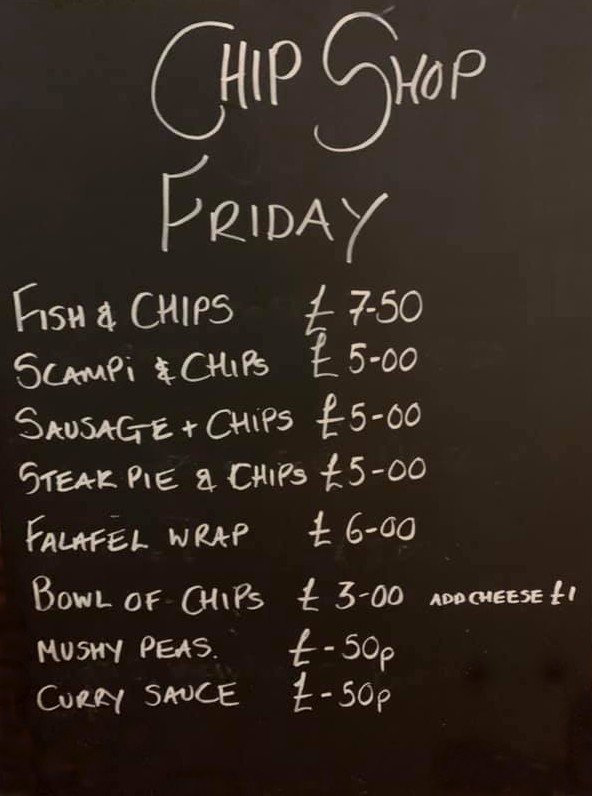 CHIP SHOP
FRIDAY
FISH & CHIPS £ 7-50
SCAMPi & CHiPs £ 5-00
SAUSAGE + CHIPS £5-00
STEAK PIE & CHIPs £5-00
FALAFEL WRAP £ 6-00
BOWL OF CHIPs £ 3-00 ADD CHEESE £1
MUSHY PEAS. £-50p
CURRY SAUCE £-50p